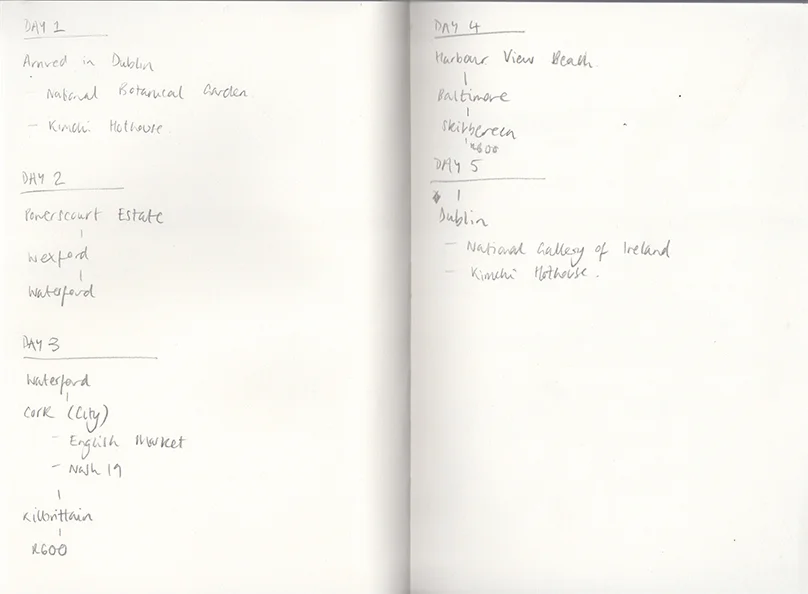 DAY 1
Arrived in Dublin
- National Botanical Garden
- Kimchi Hothouse.
DAY 2
Powerscourt Estate
Wexford
Waterford
DAY 3
Waterford
Cork (City)
- English Market
- Nash 19
Kilbrittain
R600
DAY 4
Harbour View Beach.
Baltimore
Skibbereen
R600
DAY 5
Dublin
- National Gallery of Ireland
- Kimchi Hothouse.